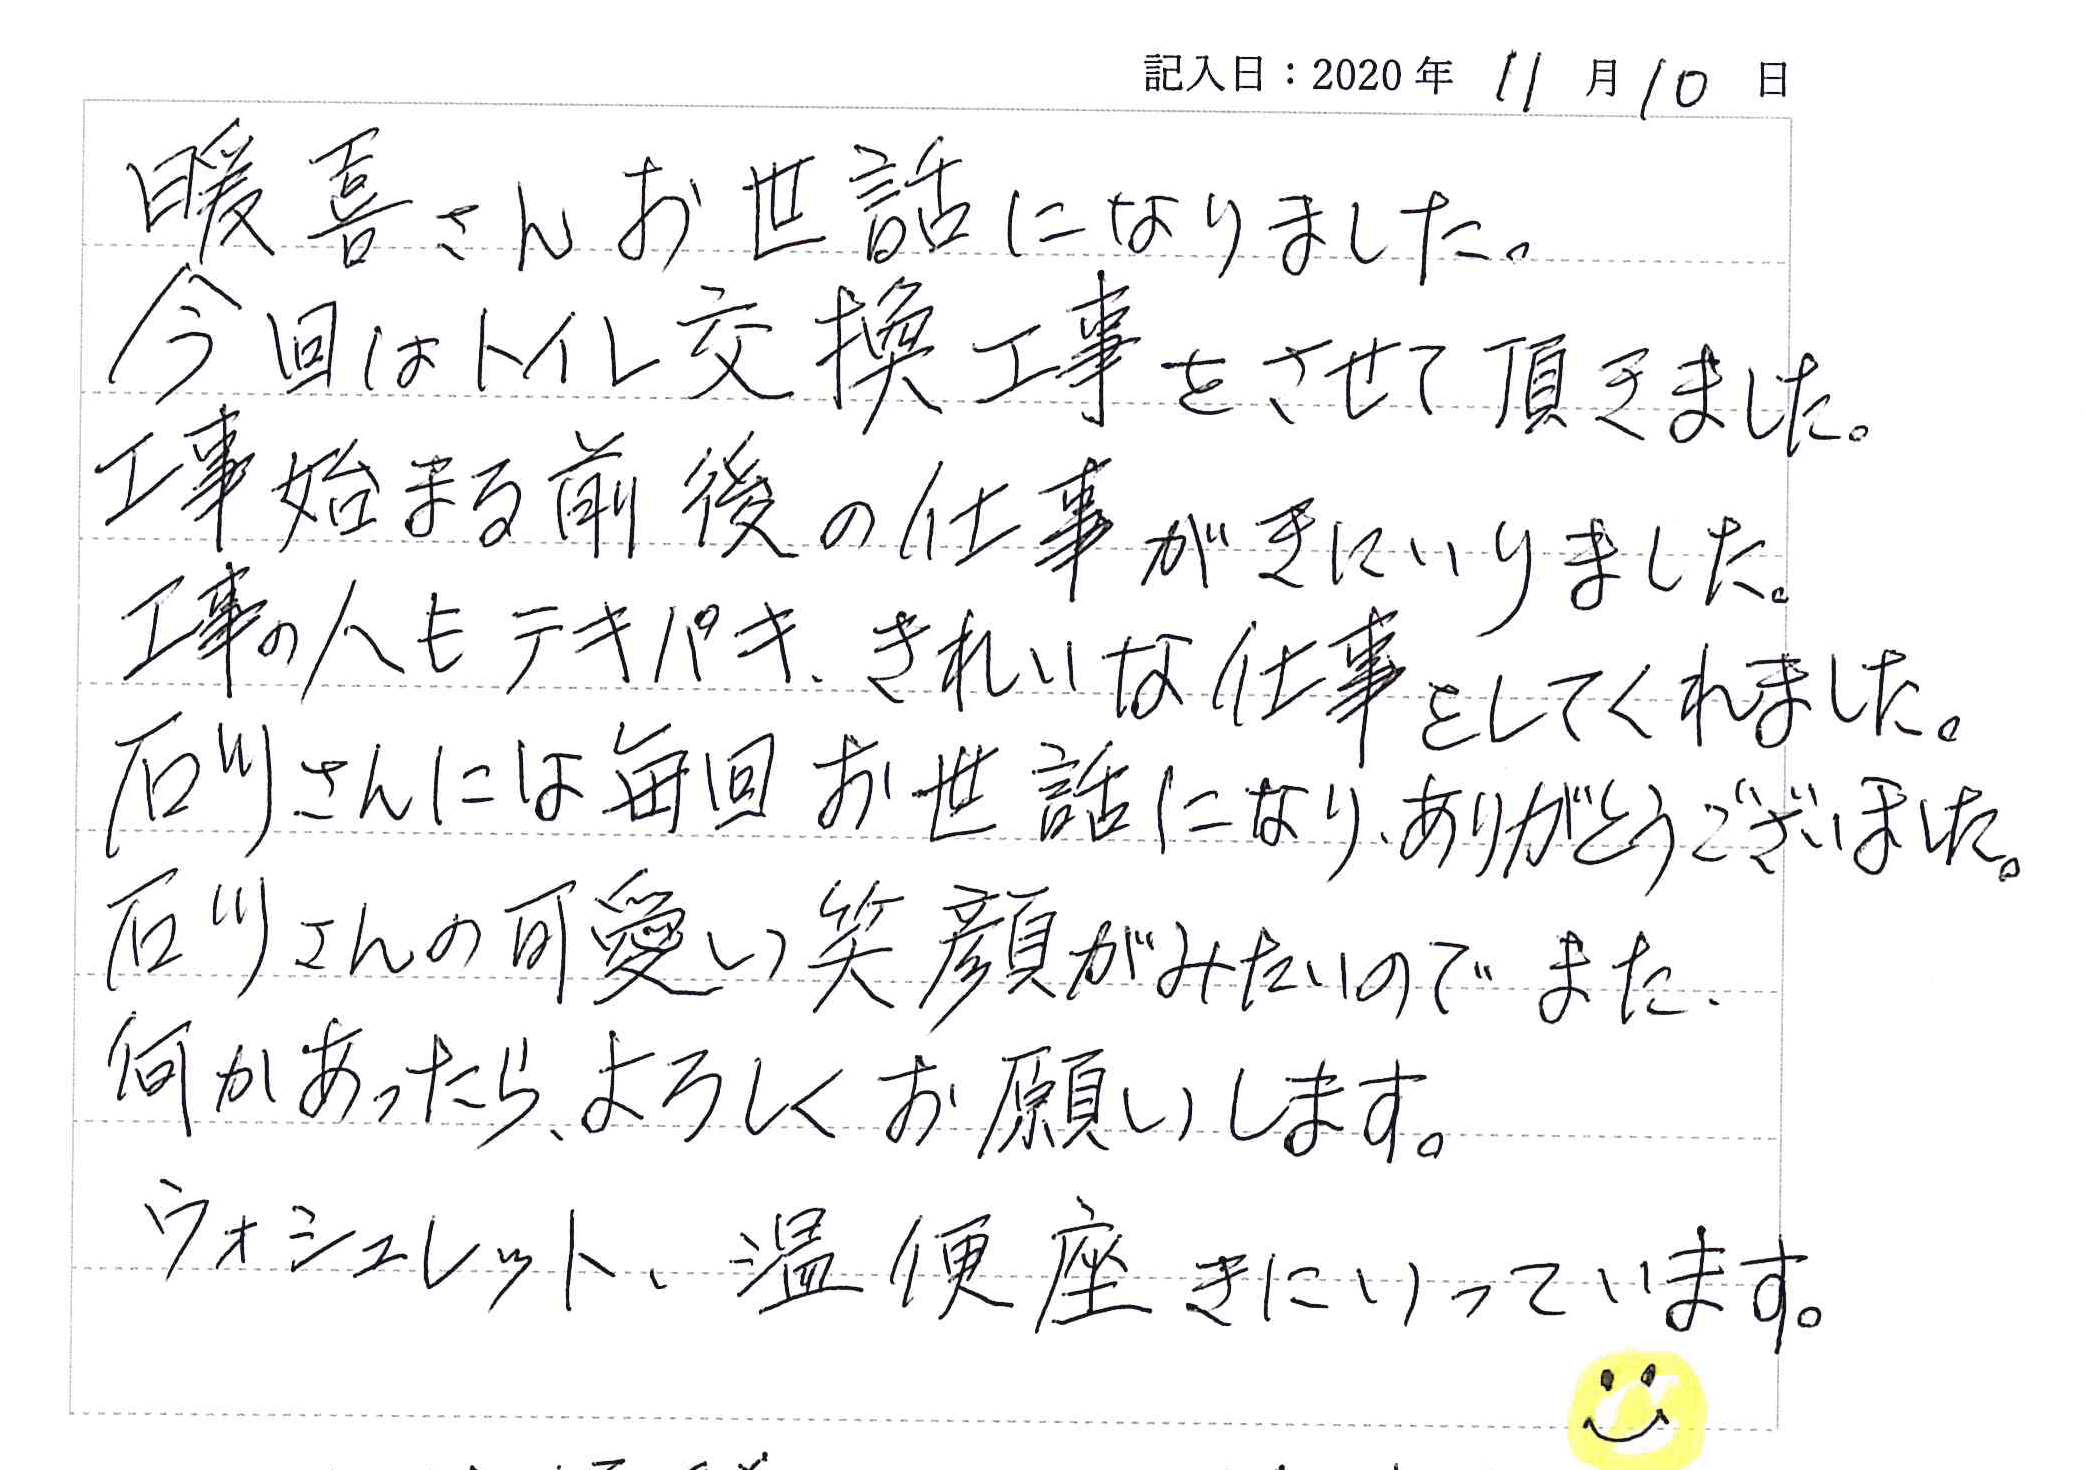 記入日：2020年 11 月 10 日
暖喜さんお世話になりました。
今回はトイレ交換工事をさせて頂きました。
工事始まる前後の仕事がきにいりました。
工事の人もテキパキ、きれいな仕事をしてくれました。
石川さんには毎回お世話になり、ありがとうございました。
石川さんの可愛い笑顔がみたいのでまた、
何かあったら、よろしくお願いします。
ウォシュレット、温便座きにいっています。